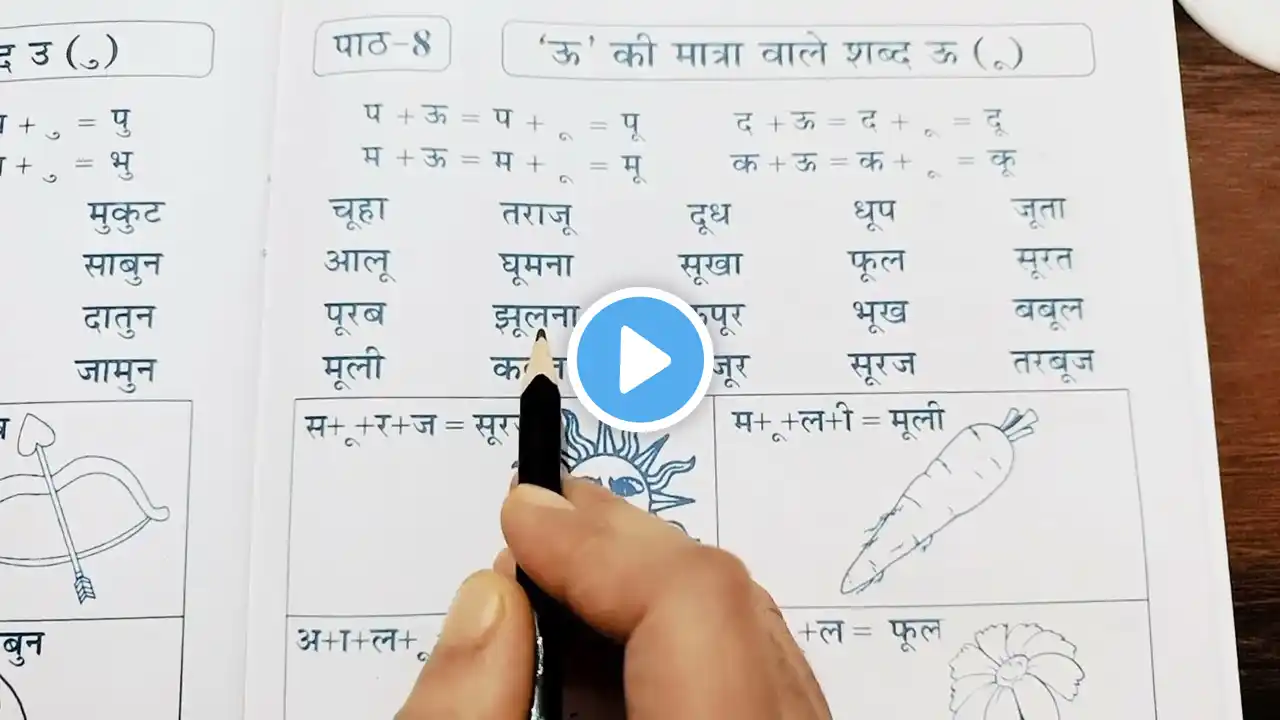 द उ (ु)
+ ु = पु
+ ु = भु
मुकुट
साबुन
दातुन
जामुन
बुन
पाठ-8
'ऊ' की मात्रा वाले शब्द ऊ (ू)
प + ऊ = प + ू = पू द + ऊ = द + ू = दू
म + ऊ = म + ू = मू क + ऊ = क + ू = कू
चूहा तराजू दूध धूप जूता
आलू घूमना सूखा फूल सूरत
पूरब झूलना भूख बबूल
मूली सूरज तरबूज
स+ू+र+ज = म+ू+ल+ी = मूली
अ+ा+ल+ू +ल = फूल